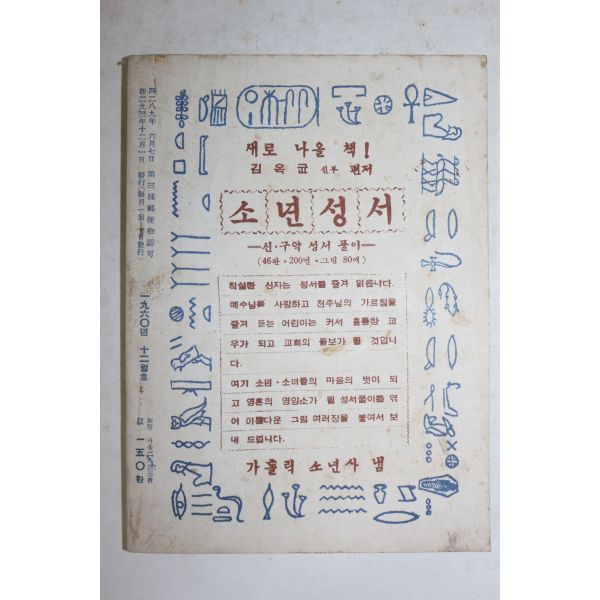 새로 나올 책!
김옥균 신부 편저
소년성서
—신·구약 성서 풀이—
(46판·200면·그림 80매)
착실한 신자는 성서를 즐겨 읽읍니다.
예수님을 사랑하고 천주님의 가르침을
즐겨 듣는 어린이는 커서 훌륭한 교
우가 되고 교회의 돌보가 될 것입니
다.
여기 소년·소녀들의 마음의 벗이 되
고 영혼의 영양소가 될 성서풀이를 엮
어 아름다운 그림 여러장을 붙여서 보
내 드립니다.
가톨릭 소년사 냄
四二八九年 六月七日 第三種郵便物認可
四二九三年十二月一日 發行(每月一回一日發行)
一九六〇년 十二월호
값 一五〇환